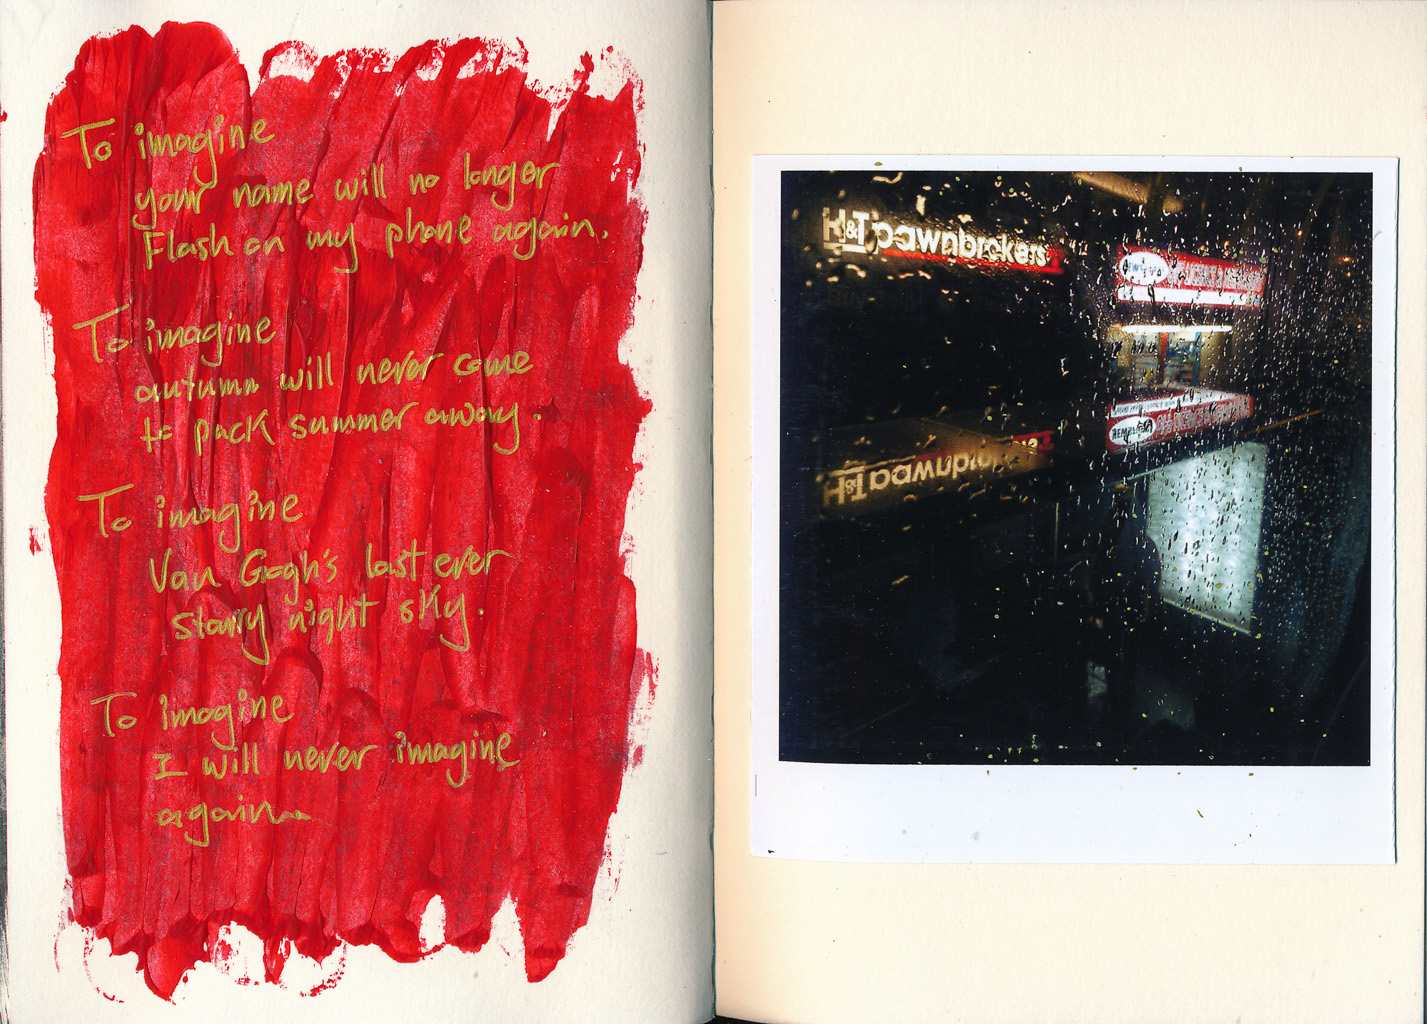 To imagine
your name will no longer
Flash on my phone again.
To imagine
autumn will never come
to pack summer away.
To imagine
Van Gogh's last ever
starry night sky.
To imagine
I will never imagine
again.
H&T pawnbrokers
H&T pawnbrokers